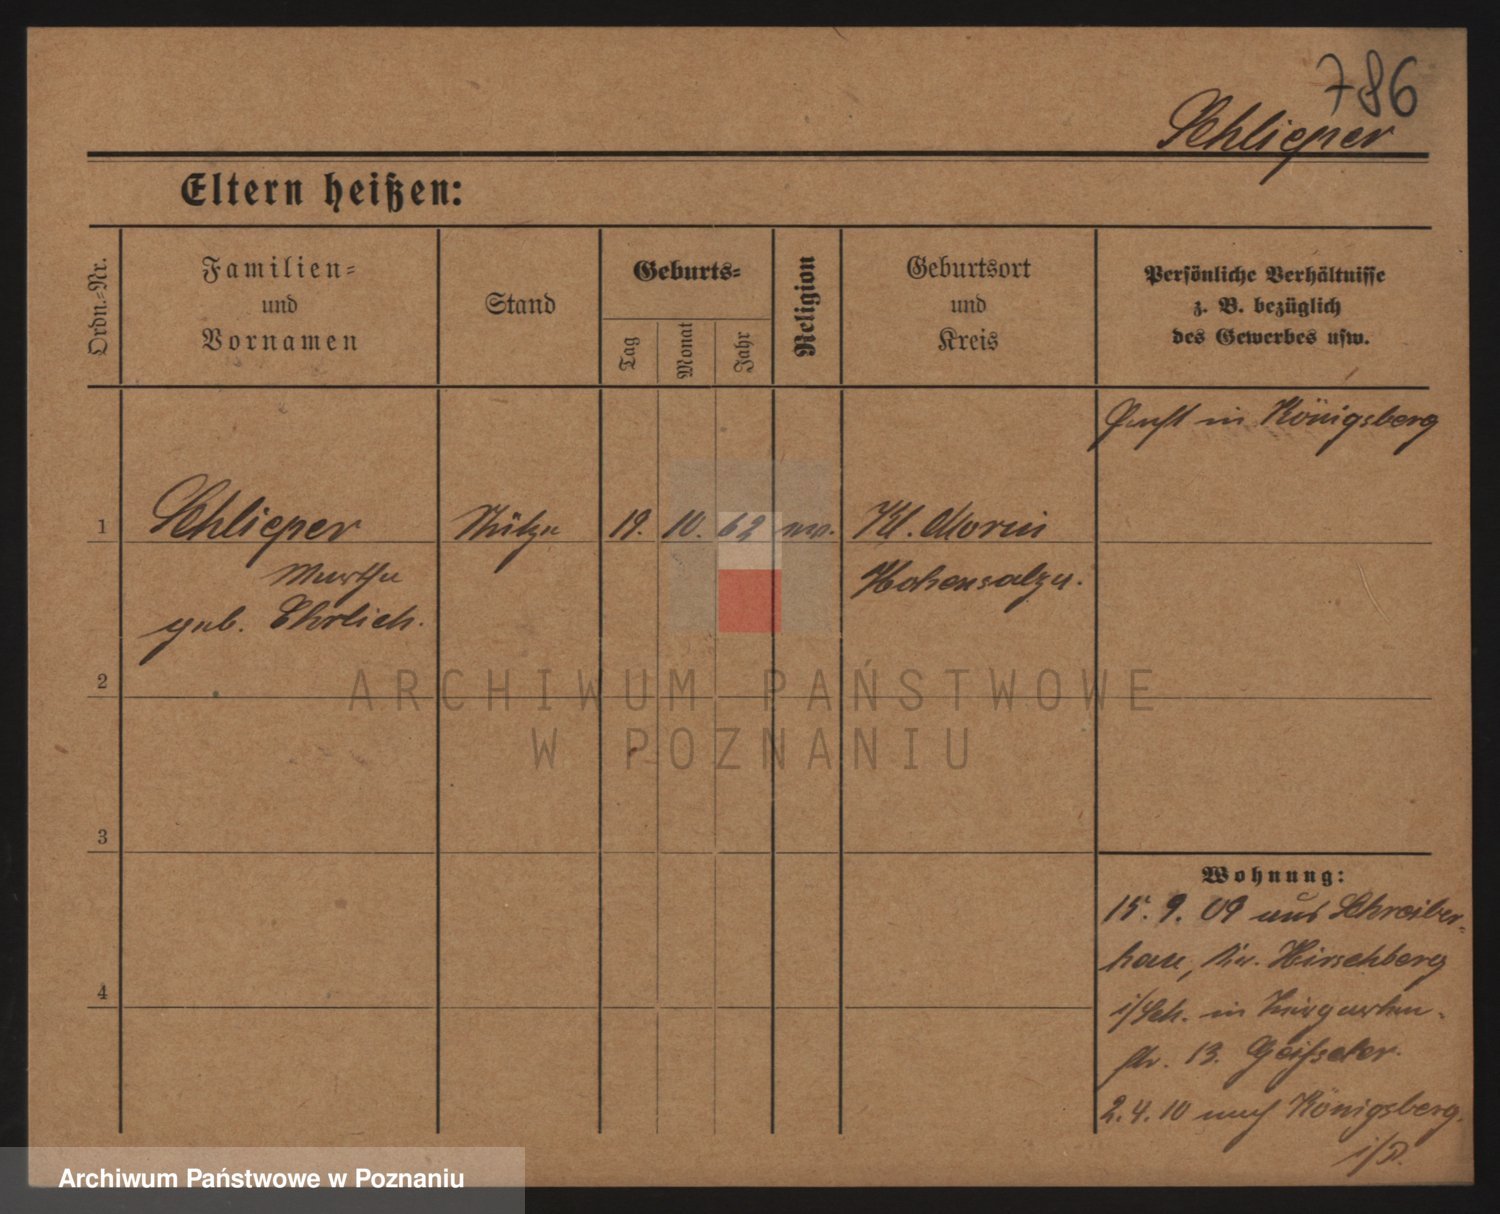 786
Schlieper
Eltern heißen:
Ordn.-Nr.
Familien-
und
Vornamen
Stand
Geburts-
Tag
Monat
Jahr
Religion
Geburtsort
und
Kreis
Persönliche Verhältnisse
z. B. bezüglich
des Gewerbes usw.
in Königsberg
1
Schlieper
Stütze
19.
10.
62
ev.
Kl. Morin
Martha
Hohensalza.
geb. Ehrlich.
2
ARCHIWUM PAŃSTWOWE
W POZNANIU
3
Wohnung:
15. 9. 09 aus Schreiber-
hau, Kr. Hirschberg
i/Sch. in Tiergarten-
str. 13. Geisseler.
4
2. 4. 10 nach Königsberg.
i/P.
Archiwum Państwowe w Poznaniu